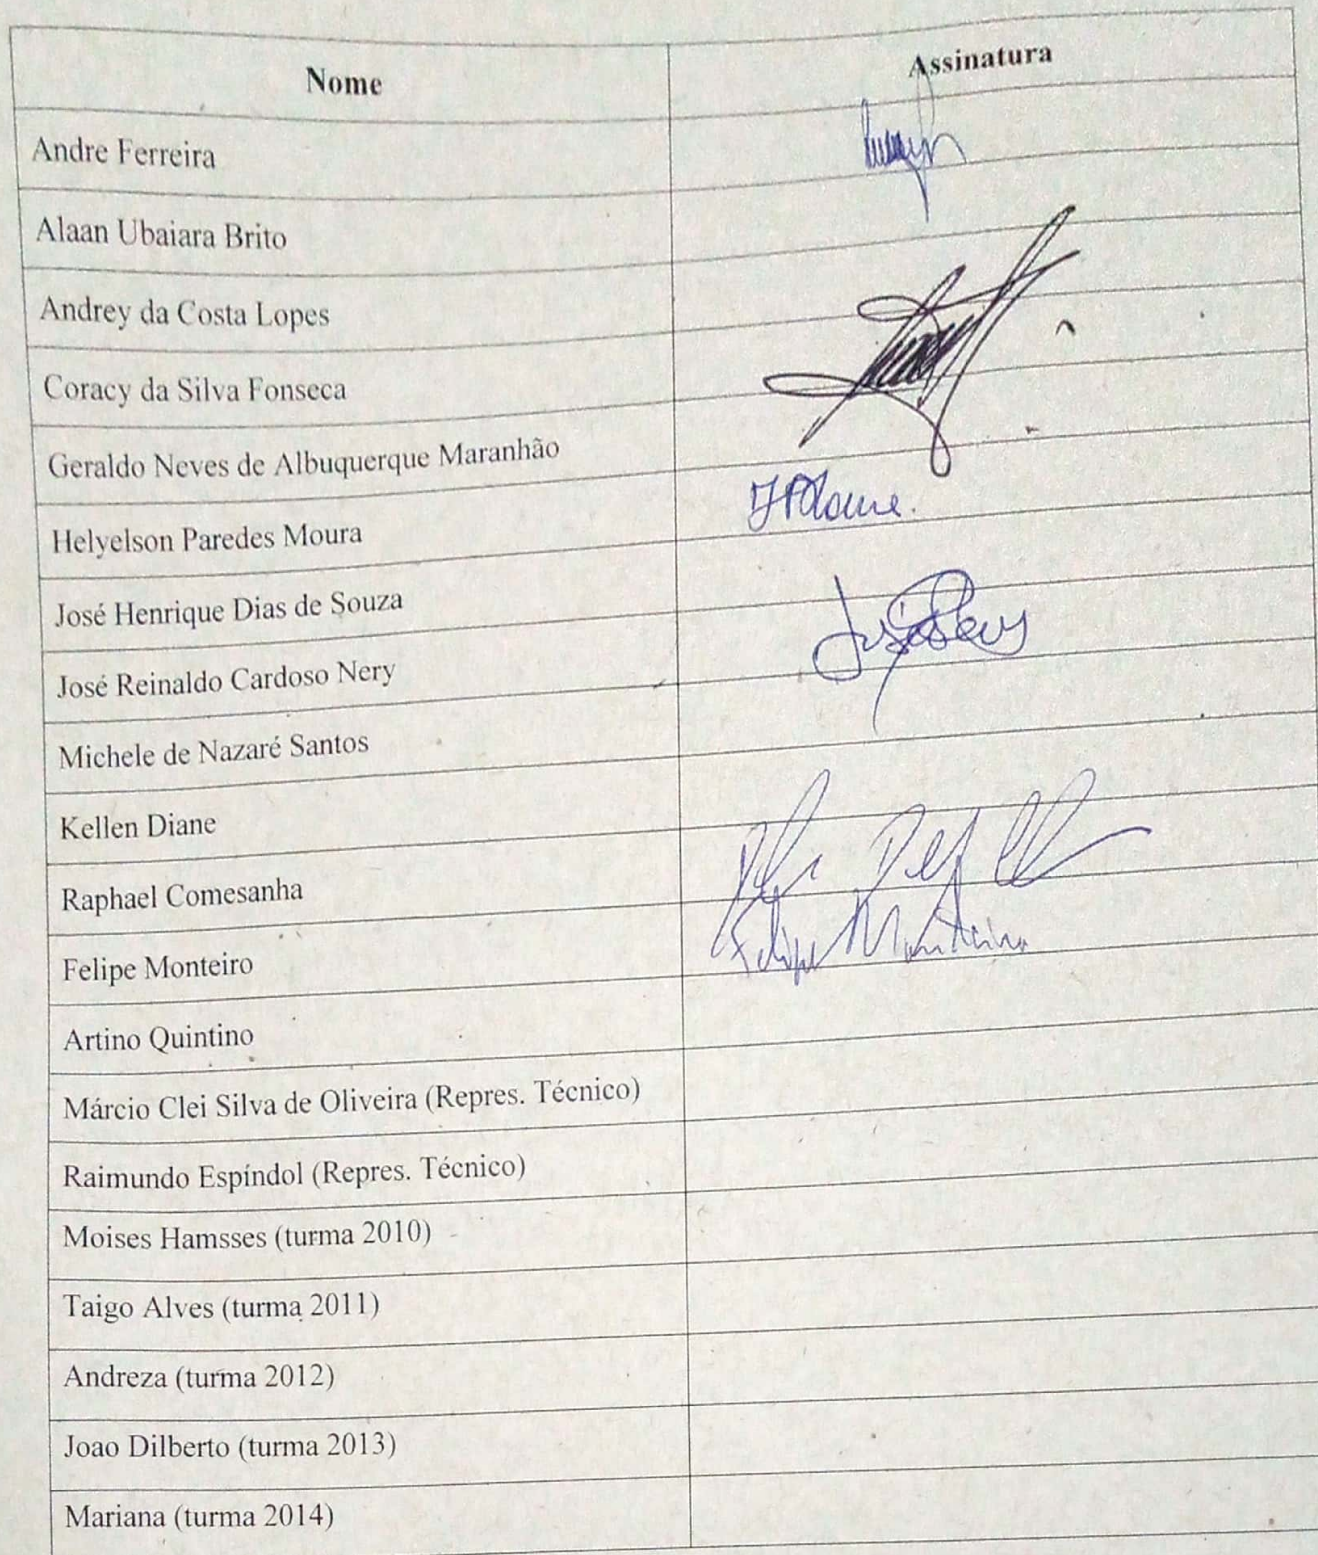 Nome Assinatura
Andre Ferreira
Alaan Ubaiara Brito
Andrey da Costa Lopes
Coracy da Silva Fonseca
Geraldo Neves de Albuquerque Maranhão
Helyelson Paredes Moura
José Henrique Dias de Souza
José Reinaldo Cardoso Nery
Michele de Nazaré Santos
Kellen Diane
Raphael Comesanha
Felipe Monteiro Felipe Monteiro
Artino Quintino
Márcio Clei Silva de Oliveira (Repres. Técnico)
Raimundo Espíndol (Repres. Técnico)
Moises Hamsses (turma 2010)
Taigo Alves (turma 2011)
Andreza (turma 2012)
Joao Dilberto (turma 2013)
Mariana (turma 2014)